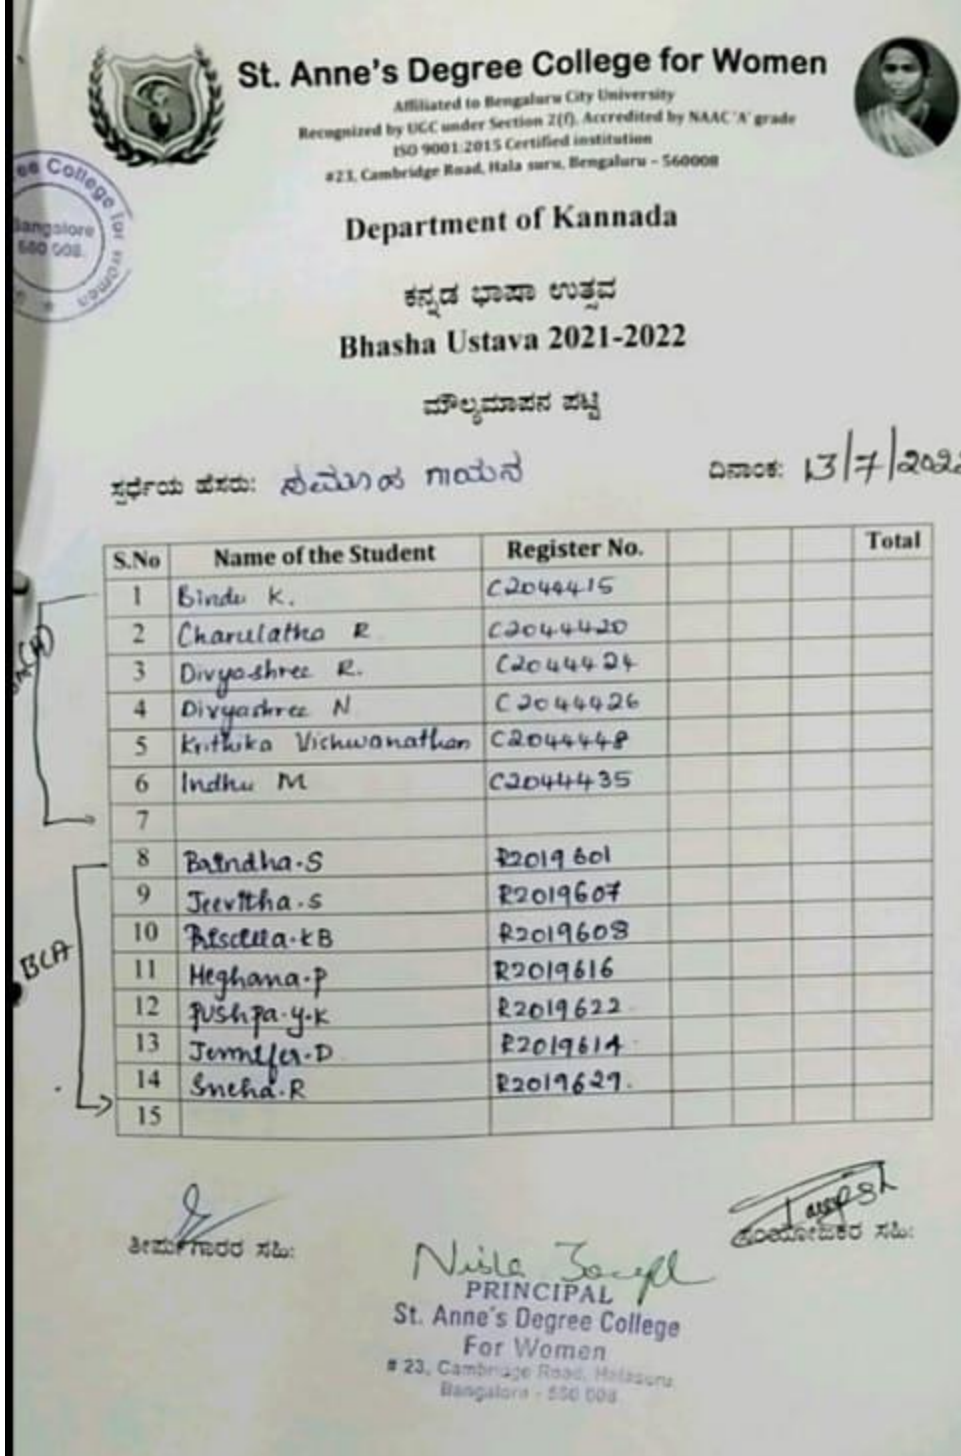 St. Anne's Degree College for Women
Affiliated to Bengaluru City University
Recognized by UGC under Section 2(f). Accredited by NAAC 'A' grade
ISO 9001:2015 Certified institution
#23, Cambridge Road, Hala suru, Bengaluru – 560008
ee College for women
Bangalore
560 008.
Department of Kannada
ಕನ್ನಡ ಭಾಷಾ ಉತ್ಸವ
Bhasha Ustava 2021-2022
ಮೌಲ್ಯಮಾಪನ ಪಟ್ಟಿ
ಸ್ಪರ್ಧೆಯ ಹೆಸರು: ಸಮೂಹ ಗಾಯನ ದಿನಾಂಕ: 13/7/2022
S.No Name of the Student Register No. Total
1 Bindu K. C2044415
2 Charulatha R C2044420
3 Divyashree R. C2044424
4 Divyashree N C2044426
5 Krithika Vishwanathan C2044448
6 Indhu M C2044435
7
8 Brindha.S R2019601
9 Jeevitha.S R2019607
10 Priscilla.KB R2019608
11 Meghana.P R2019616
BCA
12 Pushpa.Y.K R2019622
13 Jennifer.D R2019614
14 Sneha.R R2019629.
15
ತೀರ್ಪುಗಾರರ ಸಹಿ: ಸಂಯೋಜಕರ ಸಹಿ:
PRINCIPAL
St. Anne's Degree College
For Women
# 23, Cambridge Road, Halasuru,
Bangalore - 560 008